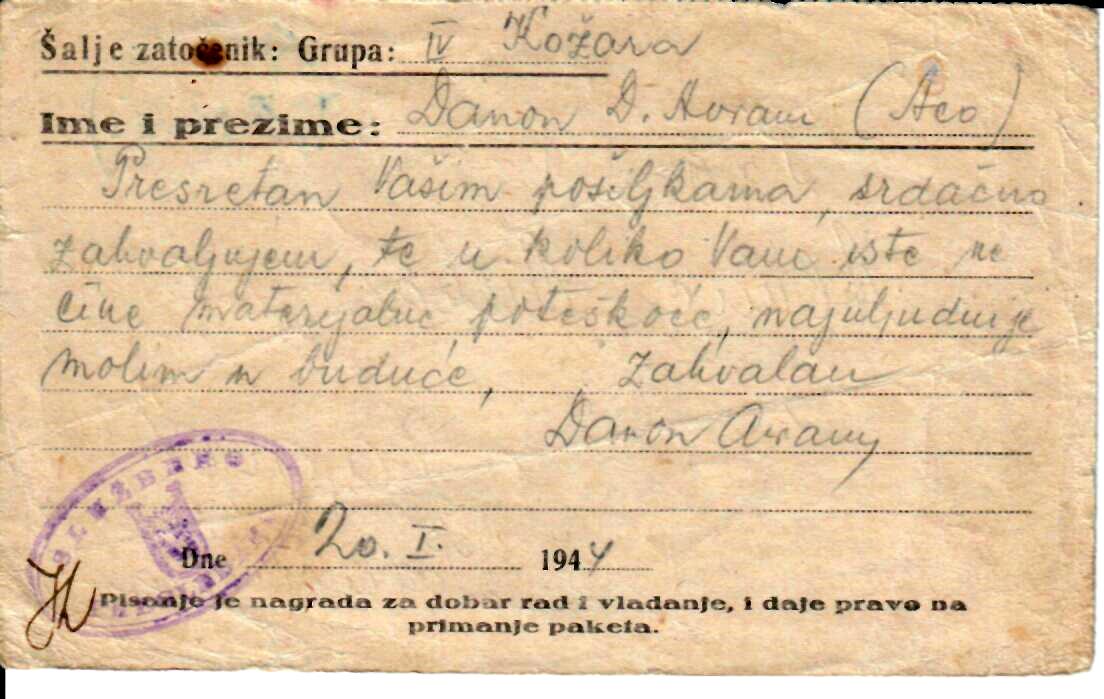 Šalje zatočenik: Grupa: IV Kožara
Ime i prezime: Danon D. Avram (Aco)
Presretan Vašim pošiljkama, srdačno
zahvaljujem, te u koliko Vam iste ne
čine materijalne poteškoće, najuljudnije
molim u buduće, Zahvalan
Danon Avram
SLUŽBENO
Dne 20. I. 1944
Pisanje je nagrada za dobar rad i vladanje, i daje pravo na
primanje paketa.